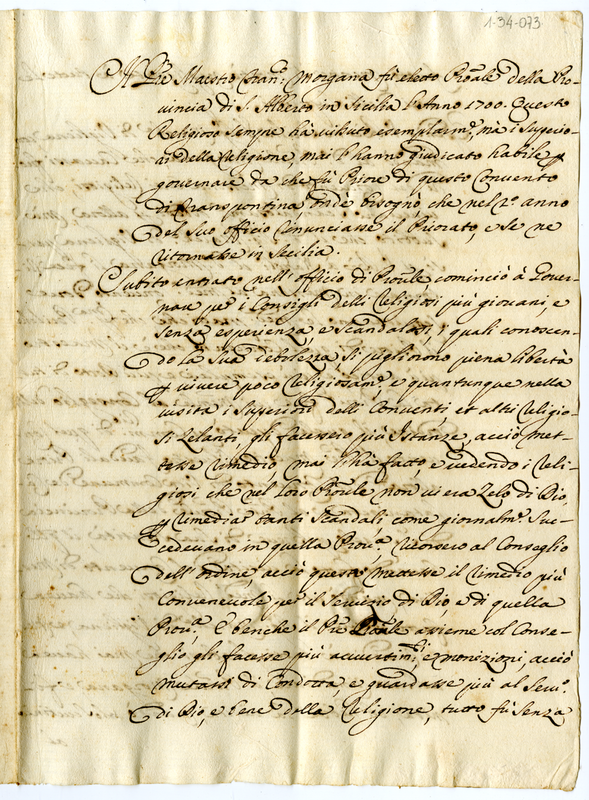 1-34-073.
Il Pre Maestro Fran: Morgana fù electo Prôale della Pro-
vincia di S. Alberto in Sicilia l'Anno 1700. Questo
Religioso sempre hà vissuto esemplarmte, mà i Superio-
ri della Religione, mai l'hanno giudicato habile p
governare da che fù Priore di questo Convento
di Transpontina, ond'è bisognò, che nel 2o anno
del suo officio rinunciasse il Priorato, e se ne
ritornasse in Sicilia.
Subito entrato nell'officio di Prôule cominciò à Gover-
nare per i Consigli delli Religiosi più giovani, e
senza esperienza, e scandalosi, i quali conoscen-
do la sua debolezza, si pigliorono piena libertà
p vivere poco Religiosamte, e quantunque nella
visita i Superiori delli Conventi, et altri Religio-
si Zelanti, gli facessero più Istanze, acciò met-
tesse rimedio, mai l'hà facto, e vedendo i Reli-
giosi che nel loro Prôule non vi era Zelo di Dio,
p rimediar tanti scandali come giornalmte suc-
cedevano in quella Prova. ricorsero al Conseglio
dell'ordine, acciò questo mettesse il rimedio più
convenevole per il servizio di Dio, e di quella
Prova. E benche il Pre assieme col Conse-
glio gli facesse più avvertimti, e monizioni, acciò
mutassi di Condotta, e guardasse più al servo
di Dio, e bene della Religione, tutto fù senza